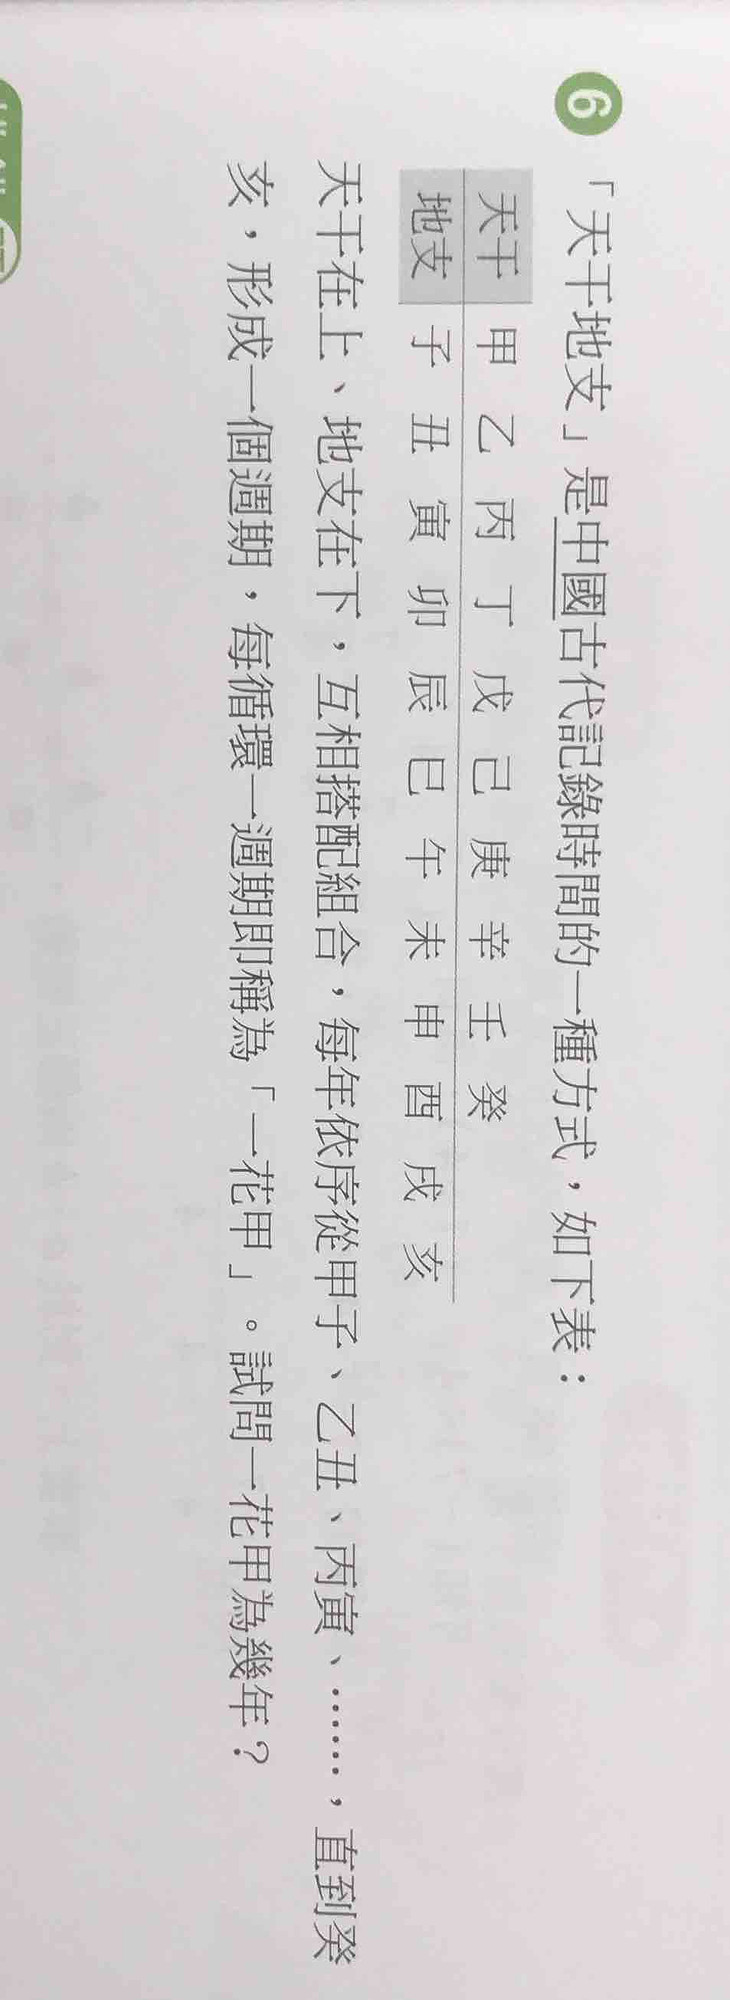 6 「天干地支」是中國古代記錄時間的一種方式，如下表：
天干 甲 乙 丙 丁 戊 己 庚 辛 壬 癸
地支 子 丑 寅 卯 辰 巳 午 未 申 酉 戌 亥
天干在上、地支在下，互相搭配組合，每年依序從甲子、乙丑、丙寅、……，直到癸
亥，形成一個週期，每循環一週期即稱為「一花甲」。試問一花甲為幾年？